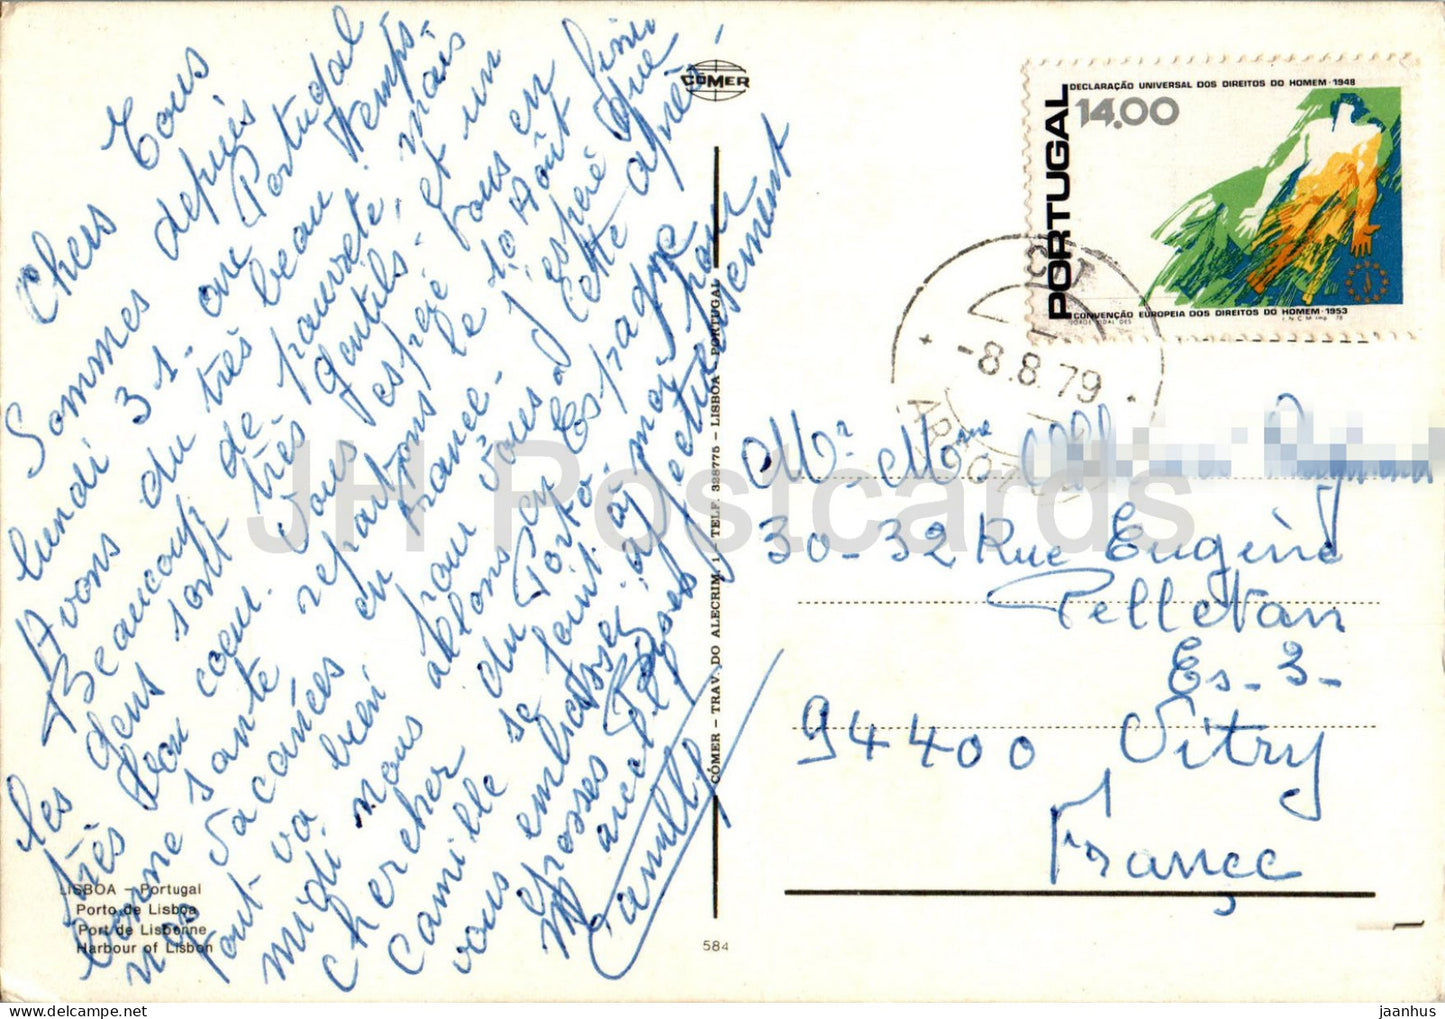 Chers Tous
Sommes depuis
lundi 31. au Portugal
Avons du très beau temps.
Beaucoup de pauvreté, mais
les gens sont très gentils, et un
très bon coeur. Vous espère tous en
bonne santé repartons le 10 Août fini
nos vacances en France. J'espère que
tout va bien pour vous. Cette après-
midi nous allons en Espagne
chercher du Porto
Camille se joint à moi pour
vous embrasser affectueusement
Grosses Bises
Marcelle
Camille
LISBOA – Portugal
Porto de Lisboa
Port de Lisbonne
Harbour of Lisbon
CÓMER
CÓMER – TRAV. DO ALECRIM, 1 – TELF. 328775 – LISBOA – PORTUGAL
584
DECLARAÇÃO UNIVERSAL DOS DIREITOS DO HOMEM · 1948
14.00
PORTUGAL
CONVENÇÃO EUROPEIA DOS DIREITOS DO HOMEM · 1953
-8.8.79
Mr. Mme
30-32 Rue Eugène
Pelletan
Es-3-
94400 Vitry
France
JH Postcards
jaanhus